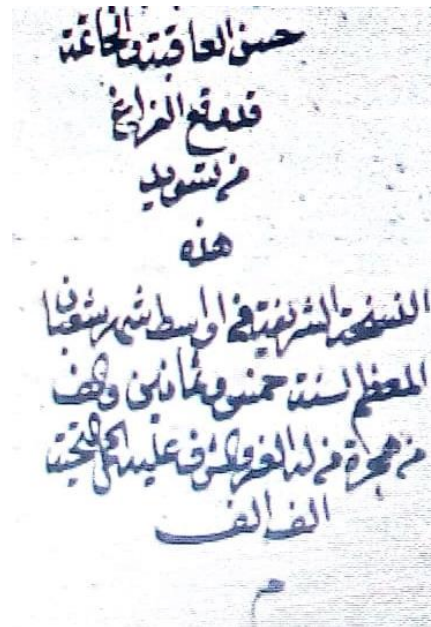 حسن العاقبة والخاتمة
قد وقع الفراغ
من تسويد
هذه
النسخة الشريفة في اواسط شهر شعبان
المعظم لسنة خمس وثمانين والف
من هجرة من له العز والشرف عليه اكمل التحية
الف الف
م